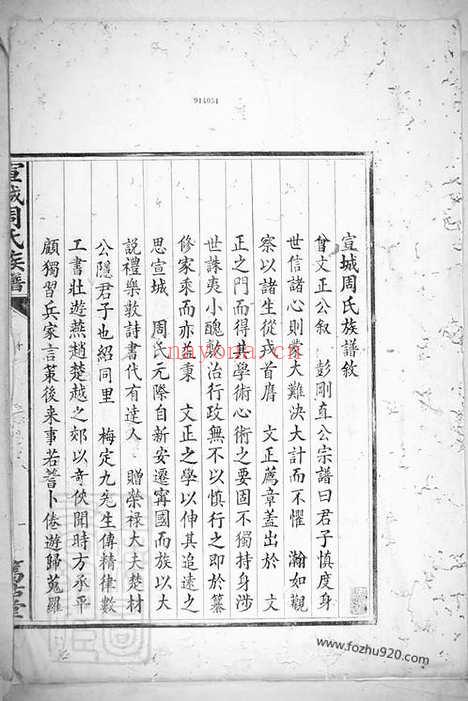 914051
宣城周氏族譜敘
曾文正公敘　彭剛直公宗譜曰君子慎度身
世信諸心則蹈大難決大計而不懼　瀚如觀
察以諸生從戎首膺　文正薦章蓋出於　文
正之門而得其學術心術之要固不獨持身涉
世誅夷小醜敷治行政無不以慎行之即於纂
修家乘而亦益秉　文正之學以伸其追遠之
思宣城　周氏元際自新安遷甯國而族以大
說禮樂敦詩書代有達人　贈榮祿大夫楚材
公隱君子也紹同里　梅定九先生傳精律數
工書壯遊燕趙楚越之郊以奇俠聞時方承平
顧獨習兵家言策後來事若蓍卜倦遊歸蒐羅
宣城周氏族譜
萬古堂
nayona.cn
www.fozhu920.com